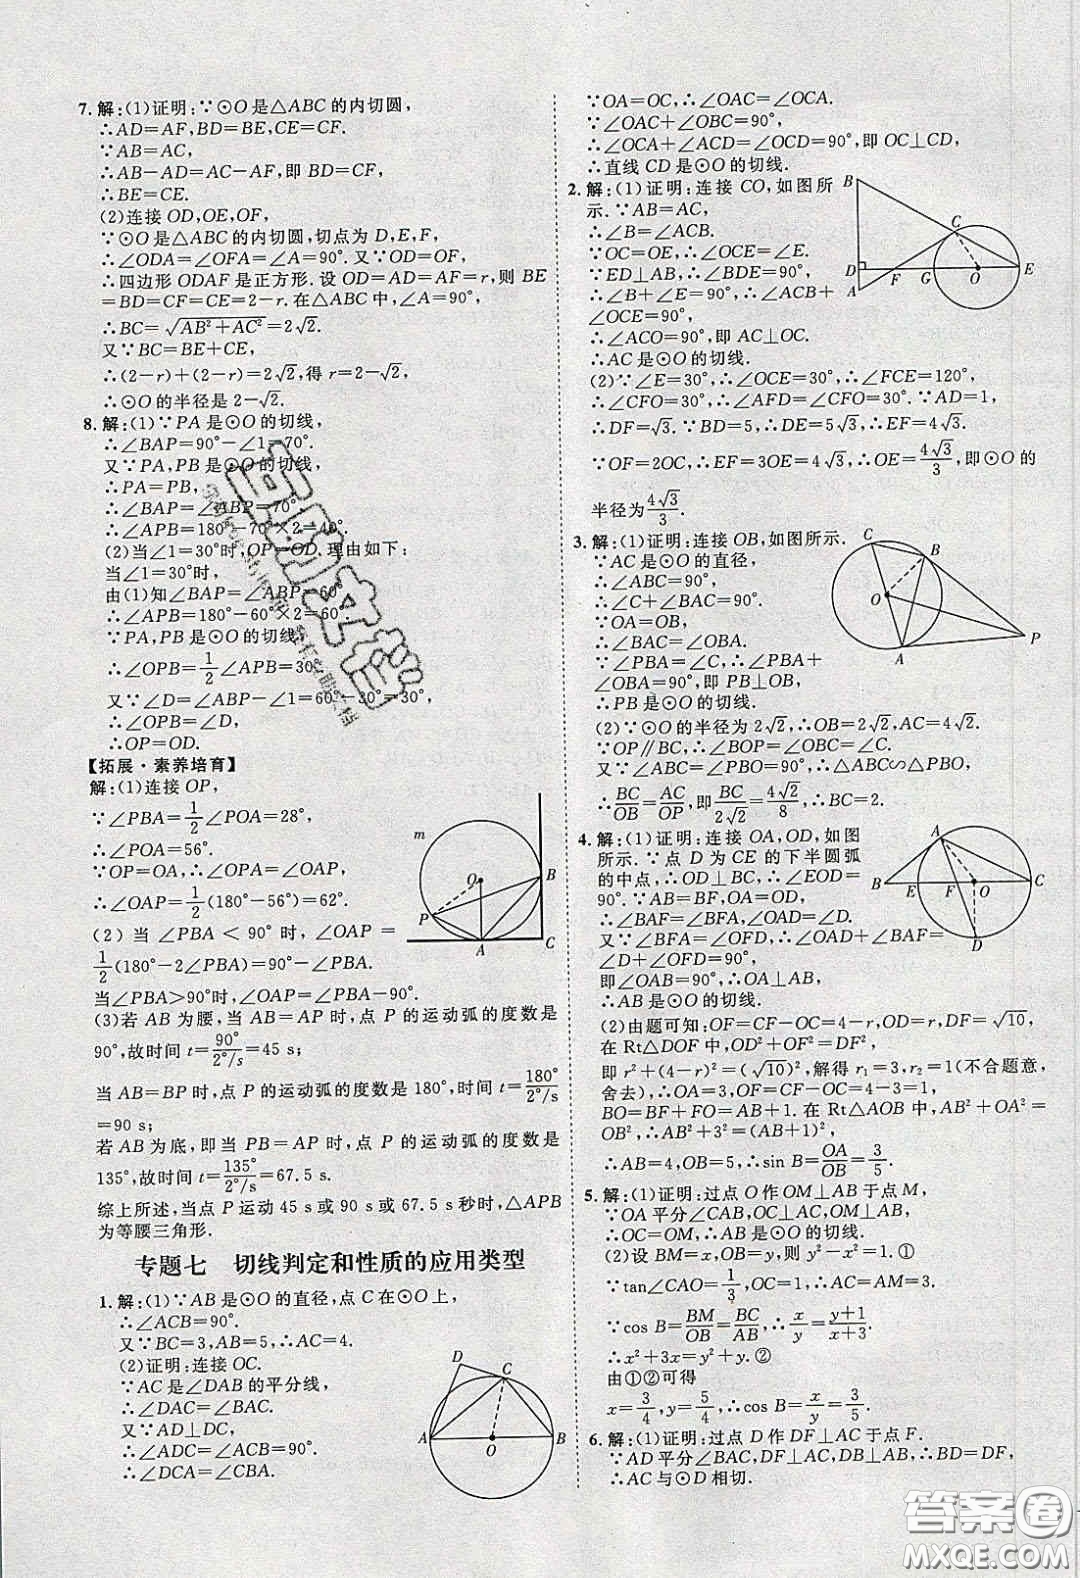 7. 解:(1)证明:∵⊙O是△ABC的内切圆,
∴AD=AF,BD=BE,CE=CF.
∵AB=AC,
∴AB-AD=AC-AF,即BD=CF,
∴BE=CE.
(2)连接OD,OE,OF,
∵⊙O是△ABC的内切圆,切点为D,E,F,
∴∠ODA=∠OFA=∠A=90°.又∵OD=OF,
∴四边形ODAF是正方形.设OD=AD=AF=r,则BE
=BD=CF=CE=2-r.在△ABC中,∠A=90°,
∴BC=√(AB²+AC²)=2√2.
又∵BC=BE+CE,
∴(2-r)+(2-r)=2√2,得r=2-√2.
∴⊙O的半径是2-√2.
8. 解:(1)∵PA是⊙O的切线,
∴∠BAP=90°-∠1=70°.
又∵PA,PB是⊙O的切线,
∴PA=PB,
∴∠BAP=∠ABP=70°.
∴∠APB=180°-70°×2=40°.
(2)当∠1=30°时,OP=OD.理由如下:
当∠1=30°时,
由(1)知∠BAP=∠ABP=60°
∴∠APB=180°-60°×2=60°.
∵PA,PB是⊙O的切线,
∴∠OPB=1/2∠APB=30°
又∵∠D=∠ABP-∠1=60°-30°=30°,
∴∠OPB=∠D.
∴OP=OD.
【拓展·素养培育】
解:(1)连接OP,
∵∠PBA=1/2∠POA=28°,
∴∠POA=56°.
∵OP=OA,∴∠OPA=∠OAP,
∴∠OAP=1/2(180°-56°)=62°.
(2)当∠PBA<90°时,∠OAP=
1/2(180°-2∠PBA)=90°-∠PBA.
当∠PBA>90°时,∠OAP=∠PBA-90°.
(3)若AB为腰,当AB=AP时,点P的运动弧的度数是
90°,故时间t=90°/2°/s=45 s;
当AB=BP时,点P的运动弧的度数是180°,时间t=180°/2°/s
=90 s;
若AB为底,即当PB=AP时,点P的运动弧的度数是
135°,故时间t=135°/2°/s=67.5 s.
综上所述,当点P运动45 s或90 s或67.5 s秒时,△APB
为等腰三角形.
m
O
B
P
A
C
专题七 切线判定和性质的应用类型
1. 解:(1)∵AB是⊙O的直径,点C在⊙O上,
∴∠ACB=90°.
又∵BC=3,AB=5,∴AC=4.
(2)证明:连接OC.
∵AC是∠DAB的平分线,
∴∠DAC=∠BAC.
又∵AD⊥DC,
∴∠ADC=∠ACB=90°.
∴∠DCA=∠CBA.
D
C
A
O
B
∵OA=OC,∴∠OAC=∠OCA.
∵∠OAC+∠OBC=90°,
∴∠OCA+∠ACD=∠OCD=90°,即OC⊥CD,
∴直线CD是⊙O的切线.
2. 解:(1)证明:连接CO,如图所
示.∵AB=AC,
∴∠B=∠ACB.
∵OC=OE,∴∠OCE=∠E.
∵ED⊥AB,∴∠BDE=90°,
∴∠B+∠E=90°,∴∠ACB+
∠OCE=90°,
∴∠ACO=90°,∴AC⊥OC.
∴AC是⊙O的切线.
(2)∵∠E=30°,∴∠OCE=30°,∴∠FCE=120°,
∴∠CFO=30°,∴∠AFD=∠CFO=30°.∵AD=1,
∴DF=√3.∵BD=5,∴DE=5√3,∴EF=4√3.
∵OF=2OC,∴EF=3OE=4√3,∴OE=4√3/3,即⊙O的
半径为4√3/3.
B
C
D
F
G
O
E
A
3. 解:(1)证明:连接OB,如图所示.
∵AC是⊙O的直径,
∴∠ABC=90°,
∴∠C+∠BAC=90°.
∵OA=OB,
∴∠BAC=∠OBA.
∵∠PBA=∠C,∴∠PBA+
∠OBA=90°,即PB⊥OB,
∴PB是⊙O的切线.
(2)∵⊙O的半径为2√2,∴OB=2√2,AC=4√2.
∵OP∥BC,∴∠BOP=∠OBC=∠C.
又∵∠ABC=∠PBO=90°,∴△ABC∽△PBO,
∴BC/OB=AC/OP,即BC/2√2=4√2/8,∴BC=2.
C
B
O
P
A
4. 解:(1)证明:连接OA,OD,如图
所示.∵点D为CE的下半圆弧
的中点,∴OD⊥BC,∴∠EOD=
90°.∵AB=BF,OA=OD,
∴∠BAF=∠BFA,∠OAD=∠D.
又∵∠BFA=∠OFD,∴∠OAD+∠BAF=
∠D+∠OFD=90°,
即∠OAB=90°,∴OA⊥AB,
∴AB是⊙O的切线.
(2)由题可知:OF=CF-OC=4-r,OD=r,DF=√10,
在Rt△DOF中,OD²+OF²=DF²,
即r²+(4-r)²=(√10)²,解得r₁=3,r₂=1(不合题意,
舍去).∴OA=3,OF=CF-OC=4-3=1.
BO=BF+FO=AB+1.在Rt△AOB中,AB²+OA²=
OB²,∴AB²+3²=(AB+1)²,
∴AB=4,OB=5,∴sin B=OA/OB=3/5.
A
B
E
F
O
C
D
5. 解:(1)证明:过点O作OM⊥AB于点M,
∵OA平分∠CAB,OC⊥AC,OM⊥AB,
∴OC=OM,∴AB是⊙O的切线.
(2)设BM=x,OB=y,则y²-x²=1.①
∵tan∠CAO=1/3,∴AC=AM=3.
∵cos B=BM/OB=BC/AB,∴x/y=(y+1)/(x+3).
∴x²+3x=y²+y.②
由①②可得
x=3/4,y=5/4,∴cos B=x/y=3/5.
6. 解:(1)证明:过点D作DF⊥AC于点F.
∵AD平分∠BAC,DF⊥AC,DB⊥AB,∴BD=DF,
∴AC与⊙D相切.
答案圈
MXQE.COM